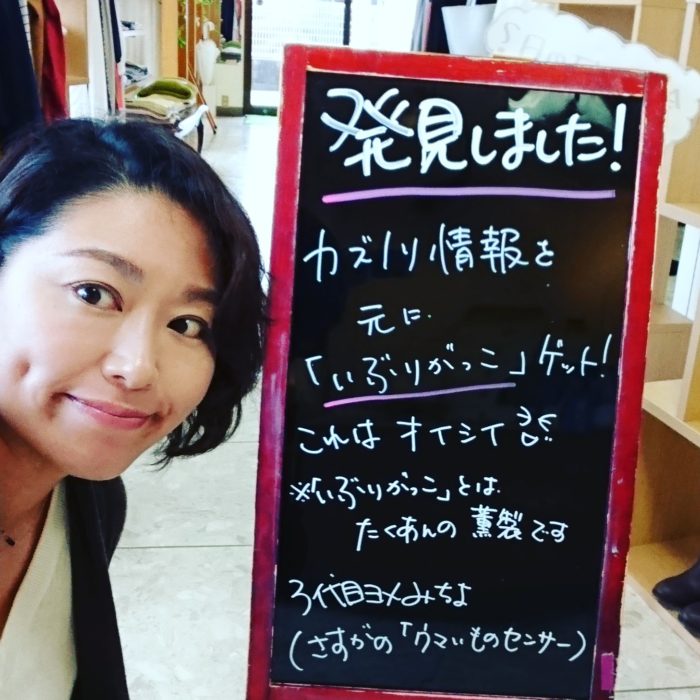 発見しました!
カズノリ情報を
元に
「いぶりがっこ」ゲット!
これは オイシイ
※「いぶりがっこ」とは
たくあんの 薫製です
3代目ヨメみちよ
(さすがの「ウマいものセンサー)